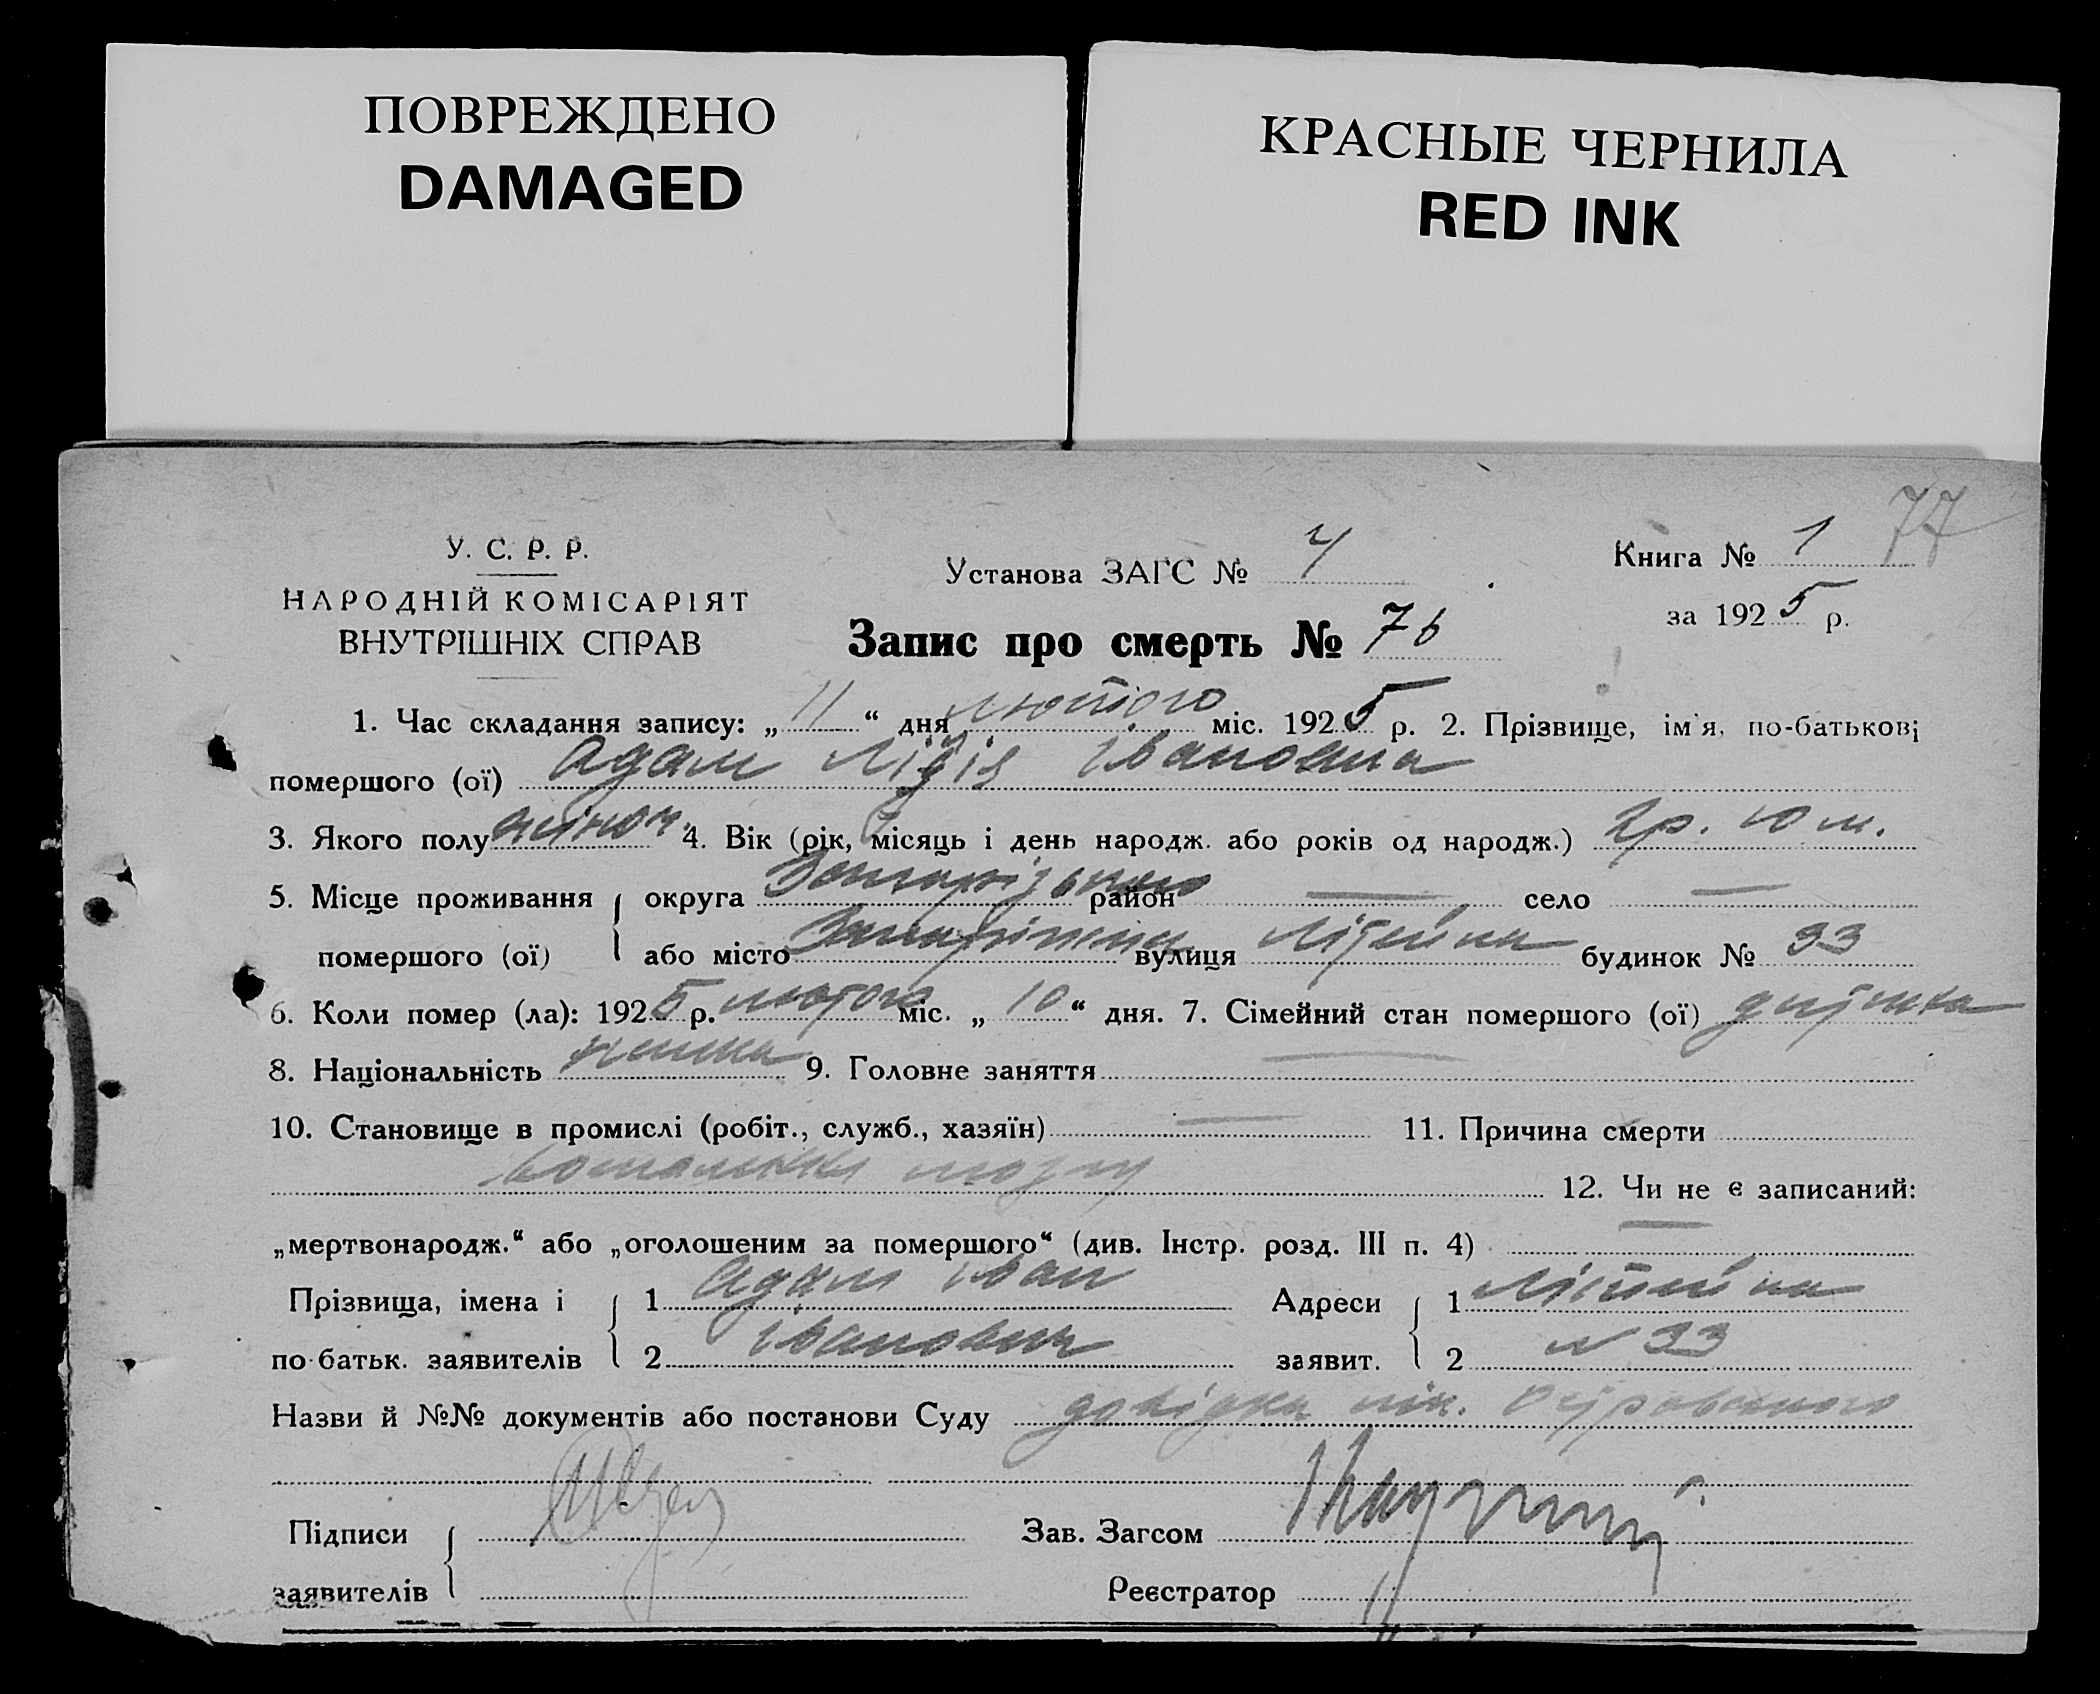 ПОВРЕЖДЕНО
DAMAGED
КРАСНЫЕ ЧЕРНИЛА
RED INK
77
У. С. Р. Р.
НАРОДНІЙ КОМІСАРІЯТ
ВНУТРІШНІХ СПРАВ
Установа ЗАГС № 4
Запис про смерть № 76
Книга № 1
за 1925 р.
1. Час складання запису: „11“ дня лютого міс. 1925 р. 2. Прізвище, ім'я, по-батькові
помершого (ої) Адам Лідія Івановна
3. Якого полу жіноч. 4. Вік (рік, місяць і день народж. або років од народж.) 2р. 10 м.
5. Місце проживання округа Запорізького район — село —
помершого (ої) або місто Запоріжжя вулиця Літейна будинок № 33
6. Коли помер (ла): 1925 р. лютого міс. „10“ дня. 7. Сімейний стан помершого (ої) дитина
8. Національність німка 9. Головне заняття —
10. Становище в промислі (робіт., служб., хазяїн) — 11. Причина смерти
мозгу 12. Чи не є записаний:
„мертвонародж.“ або „оголошеним за помершого“ (див. Інстр. розд. III п. 4) —
Прізвища, імена і 1 Адам Іван Адреси 1 Літейна
по-батьк. заявителів 2 Іванович заявит. 2 № 33
Назви й №№ документів або постанови Суду довідка лік.
Підписи Зав. Загсом
заявителів Реєстратор